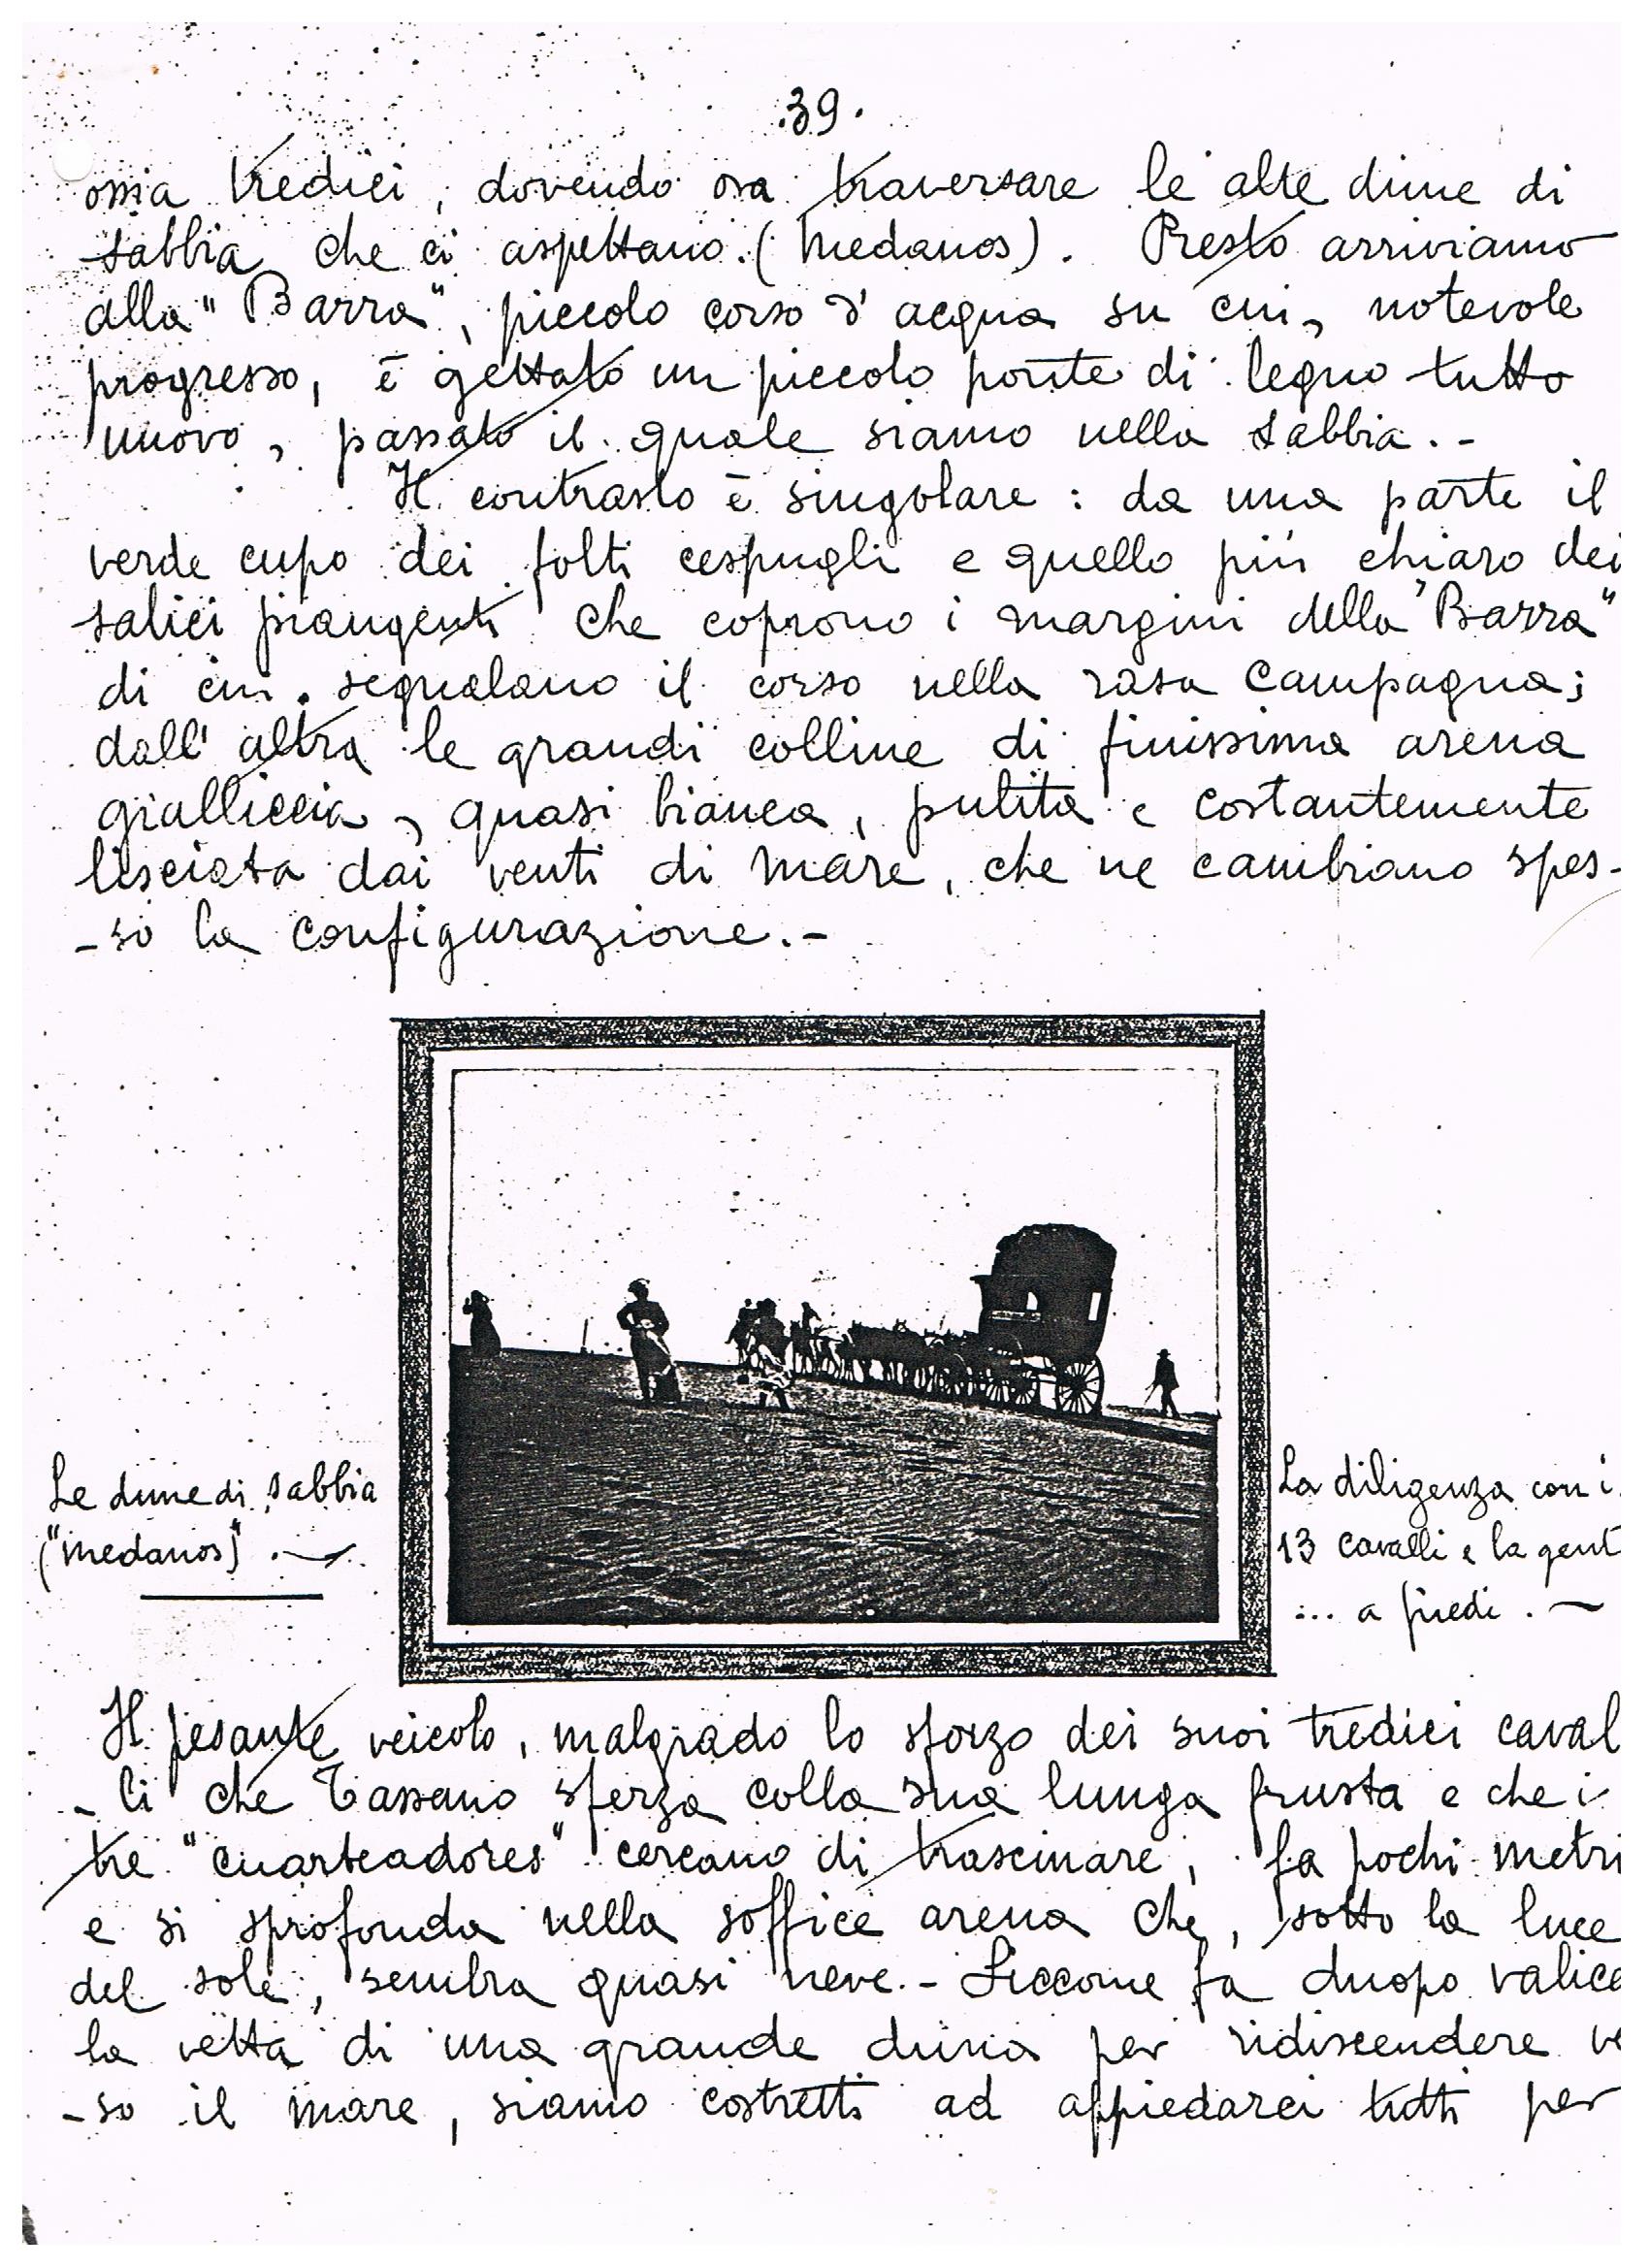 .39.
ossia tredici, dovendo ora traversare le alte dune di
sabbia che ci aspettano. (Medanos). Presto arriviamo
alla "Barra", piccolo corso d'acqua su cui, notevole
progresso, è gettato un piccolo ponte di legno tutto
nuovo, passato il quale siamo nella sabbia.-
Il contrasto è singolare : da una parte il
verde cupo dei folti cespugli e quello più chiaro dei
salici piangenti che coprono i margini della "Barra"
di cui segnalano il corso nella rasa campagna;
dall'altra le grandi colline di finissima arena
gialliccia, quasi bianca, pulita e costantemente
lisciata dai venti di mare, che ne cambiano spes-
-so la configurazione.-
Le dune di sabbia
("medanos").
La diligenza con i
13 cavalli e la gent
... a piedi.
Il pesante veicolo, malgrado lo sforzo dei suoi tredici caval
-li che Tassano sferza colla sua lunga frusta e che i
tre "cuarteadores" cercano di trascinare, fa pochi metri
e si sprofonda nella soffice arena che, sotto la luce
del sole, sembra quasi neve.- Siccome fa duopo valica
la vetta di una grande duna per ridiscendere ve
-so il mare, siamo costretti ad appiedarci tutti per